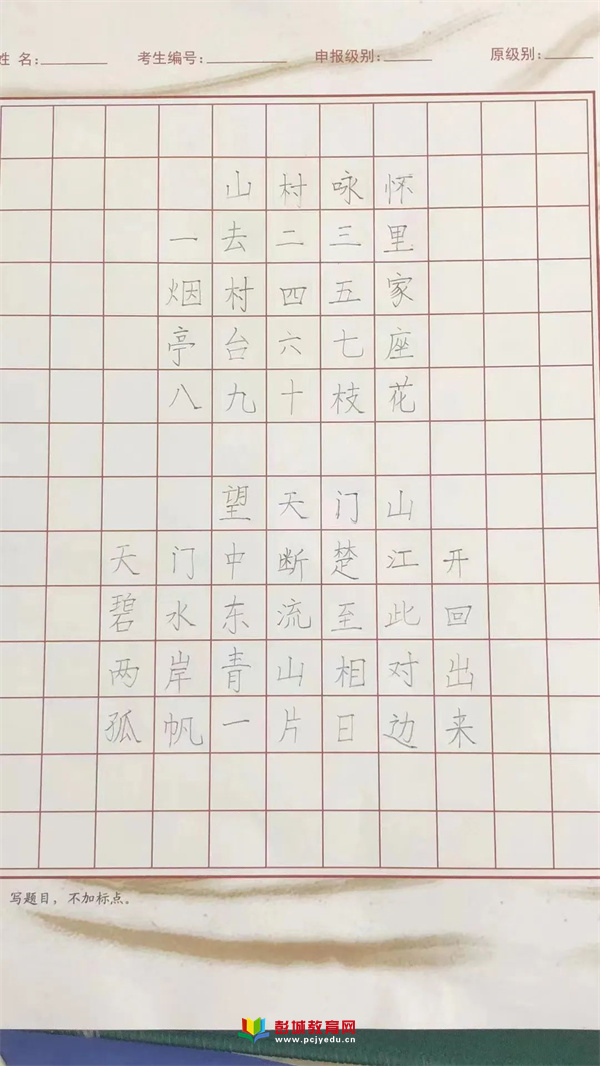 姓 名：
考生编号：
申报级别：
原级别：
山村咏怀
一去二三里
烟村四五家
亭台六七座
八九十枝花
望天门山
天门中断楚江开
碧水东流至此回
两岸青山相对出
孤帆一片日边来
写题目，不加标点。
彭城教育网
www.pcjyedu.cn